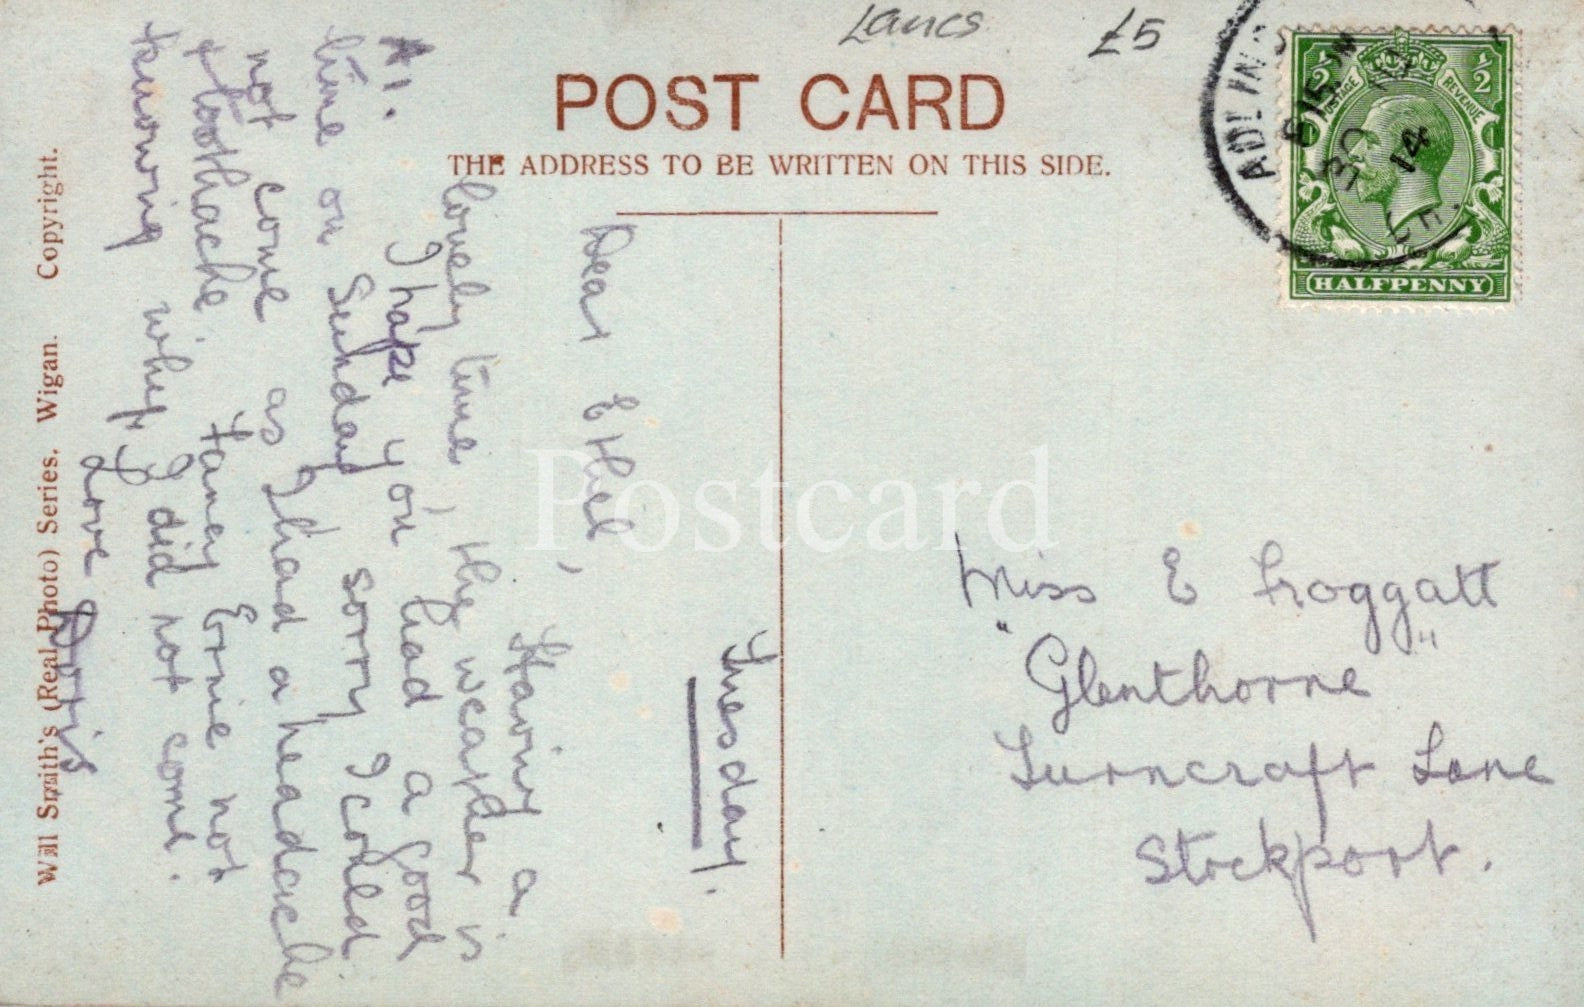 Lancs £5
POST CARD
THE ADDRESS TO BE WRITTEN ON THIS SIDE.
ADLINGTON
6 15 PM
30
14
½ ½
POSTAGE REVENUE
HALFPENNY
Tuesday.
Dear Ethel,
Having a
lovely time, the weather is
A1. I hope you had a good
time on Sunday sorry I could
not come as I had a headache
& toothache. Fancy Ernie not
knowing why I did not come.
Love Doris
Miss E Froggatt
"Glenthorne"
Turncroft Lane
Stockport.
Will Smith's (Real Photo) Series. Wigan. Copyright.
Postcard